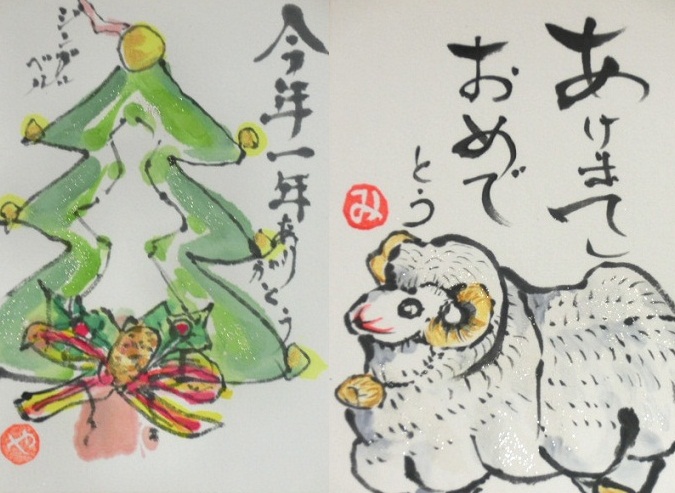 ジングル
ベル
今年一年
ありがとう
や
あけまして
おめで
とう
み